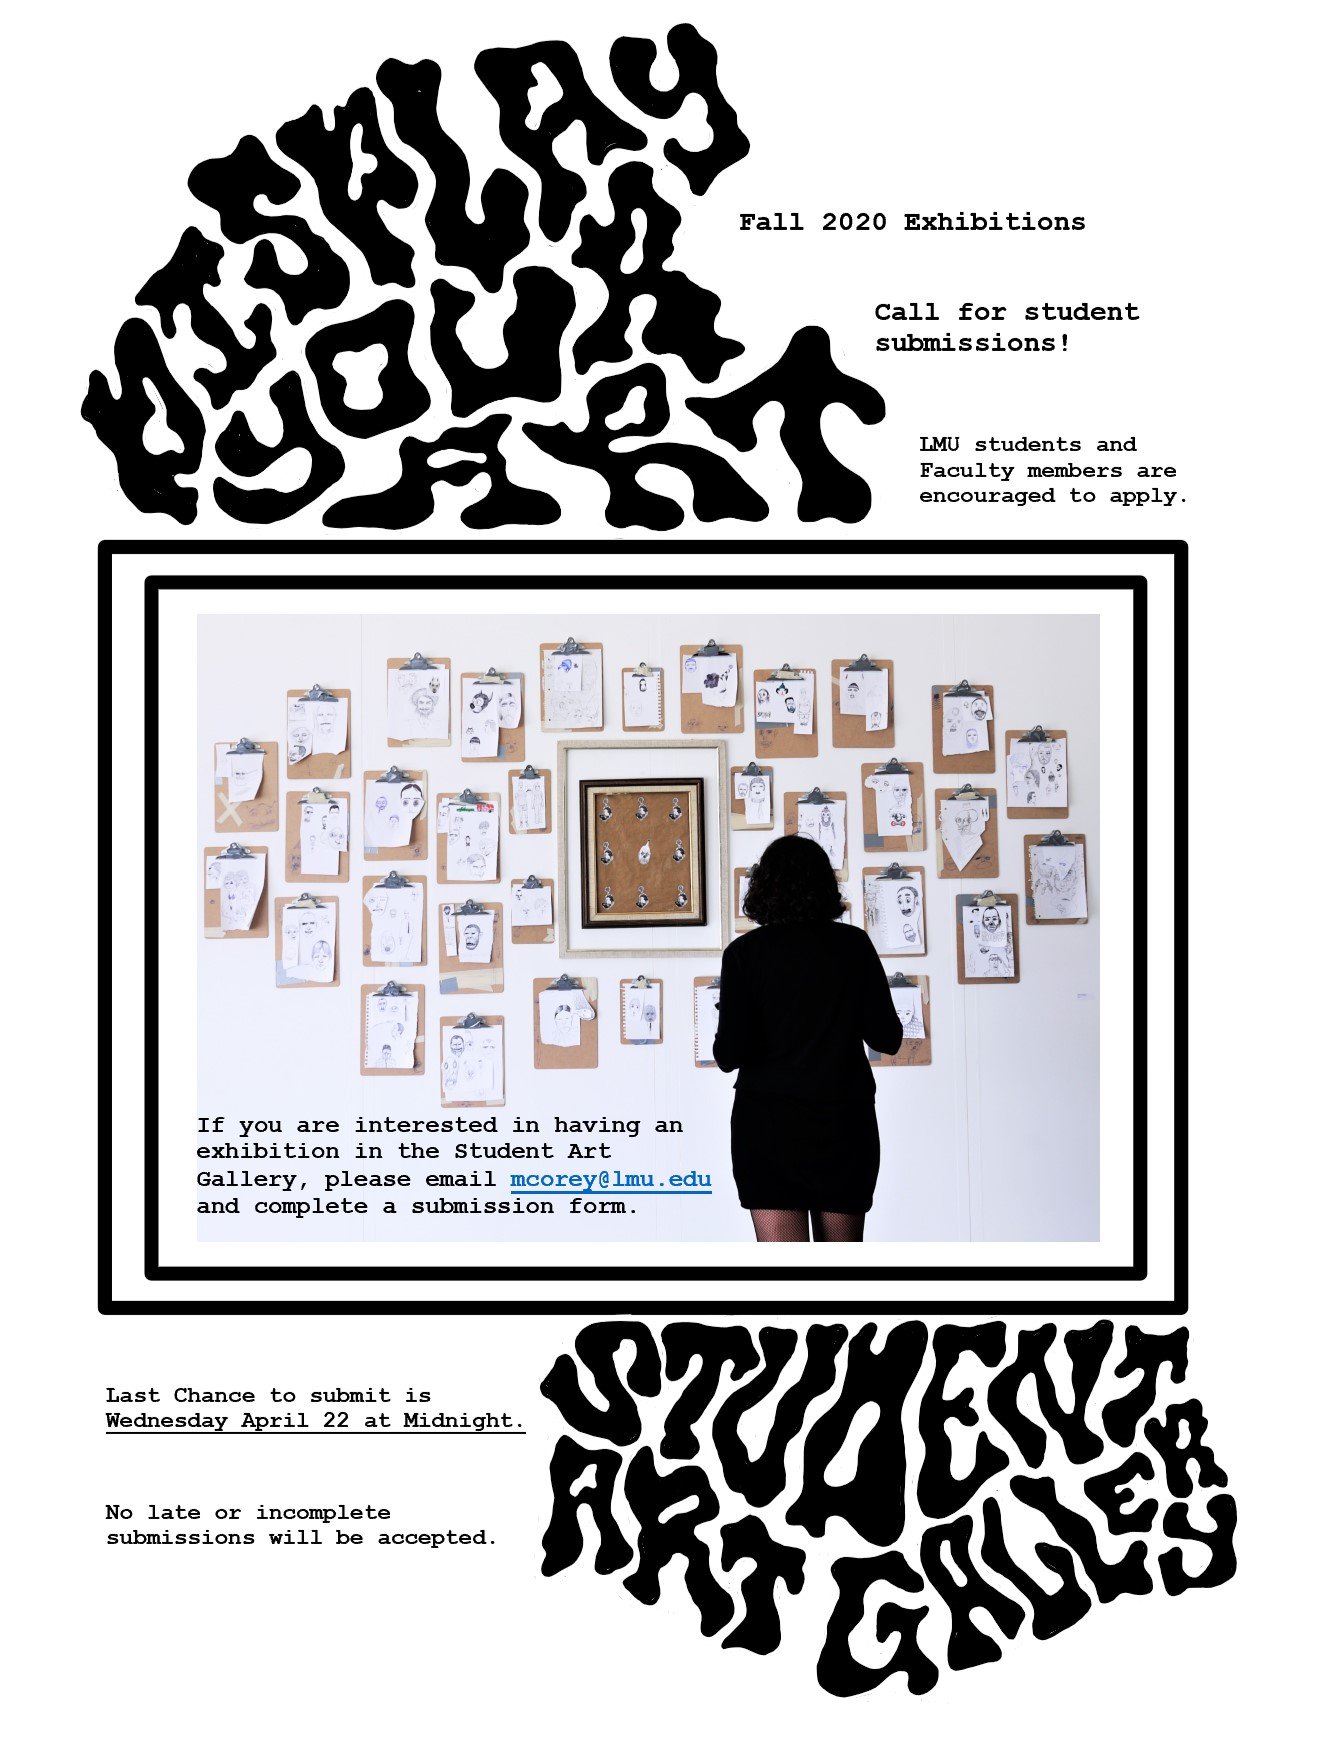 DISPLAY
YOUR
ART
Fall 2020 Exhibitions
Call for student
submissions!
LMU students and
Faculty members are
encouraged to apply.
If you are interested in having an
exhibition in the Student Art
Gallery, please email mcorey@lmu.edu
and complete a submission form.
Last Chance to submit is
Wednesday April 22 at Midnight.
No late or incomplete
submissions will be accepted.
STUDENT
ART GALLERY